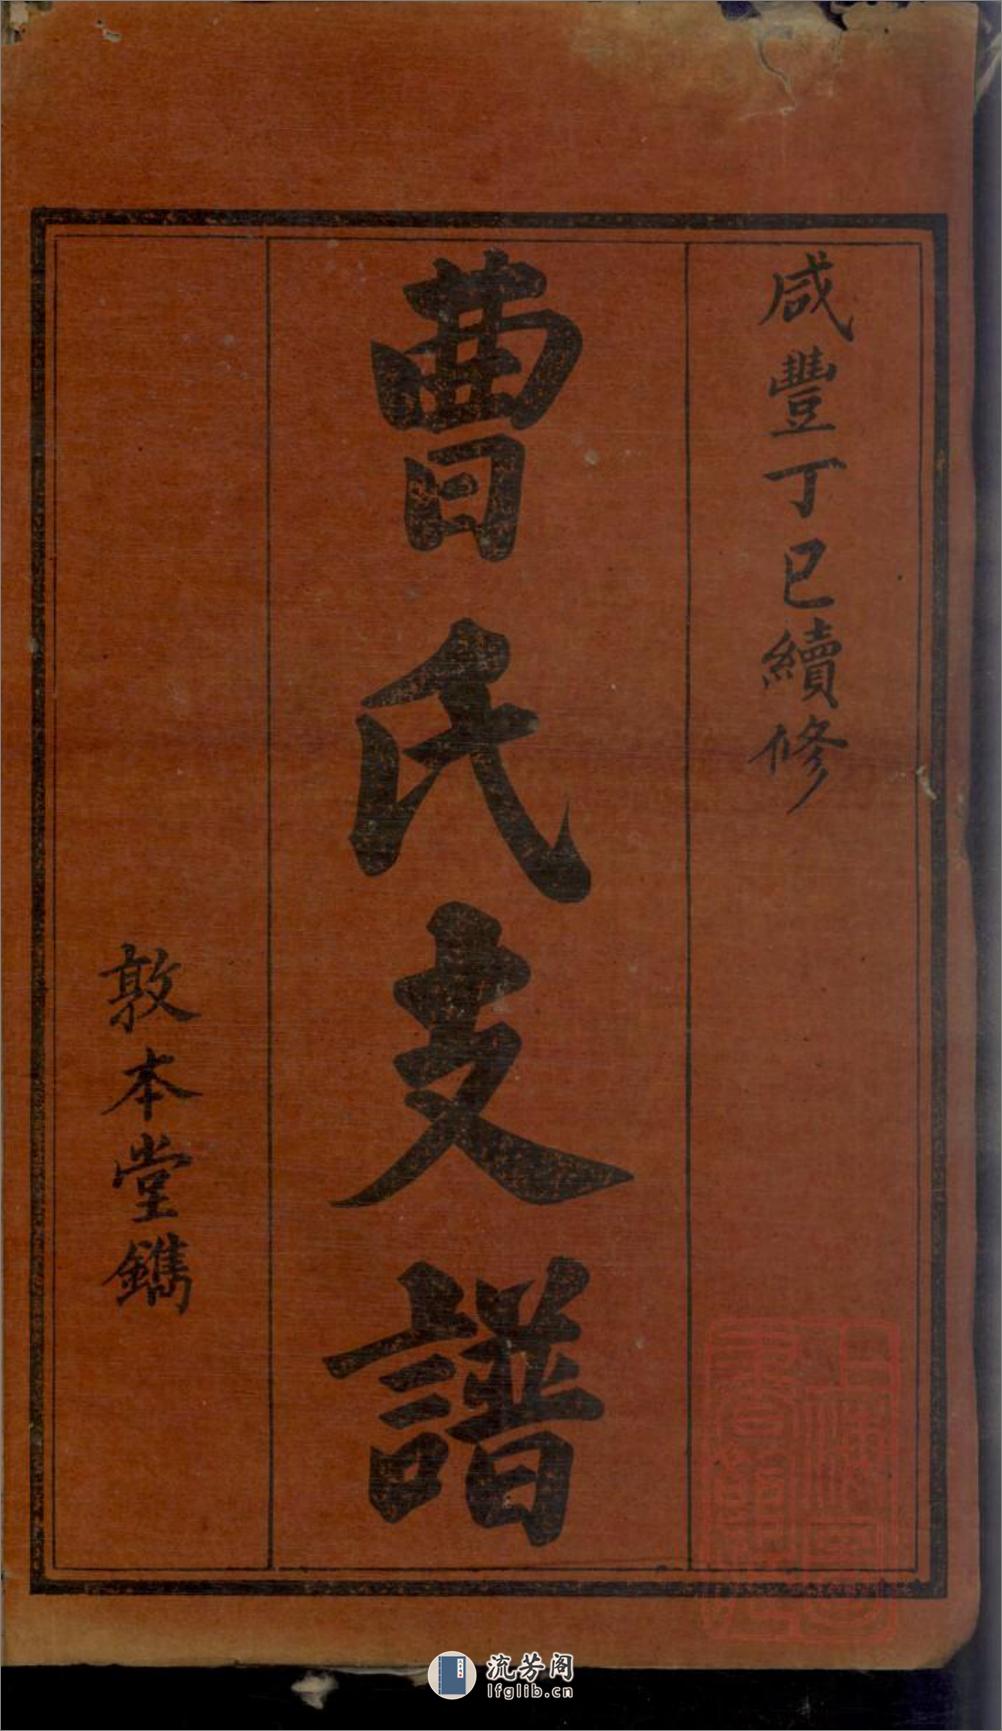 咸豐丁巳續修
曹氏支譜
敦本堂鐫
流芳阁
lfglib.cn